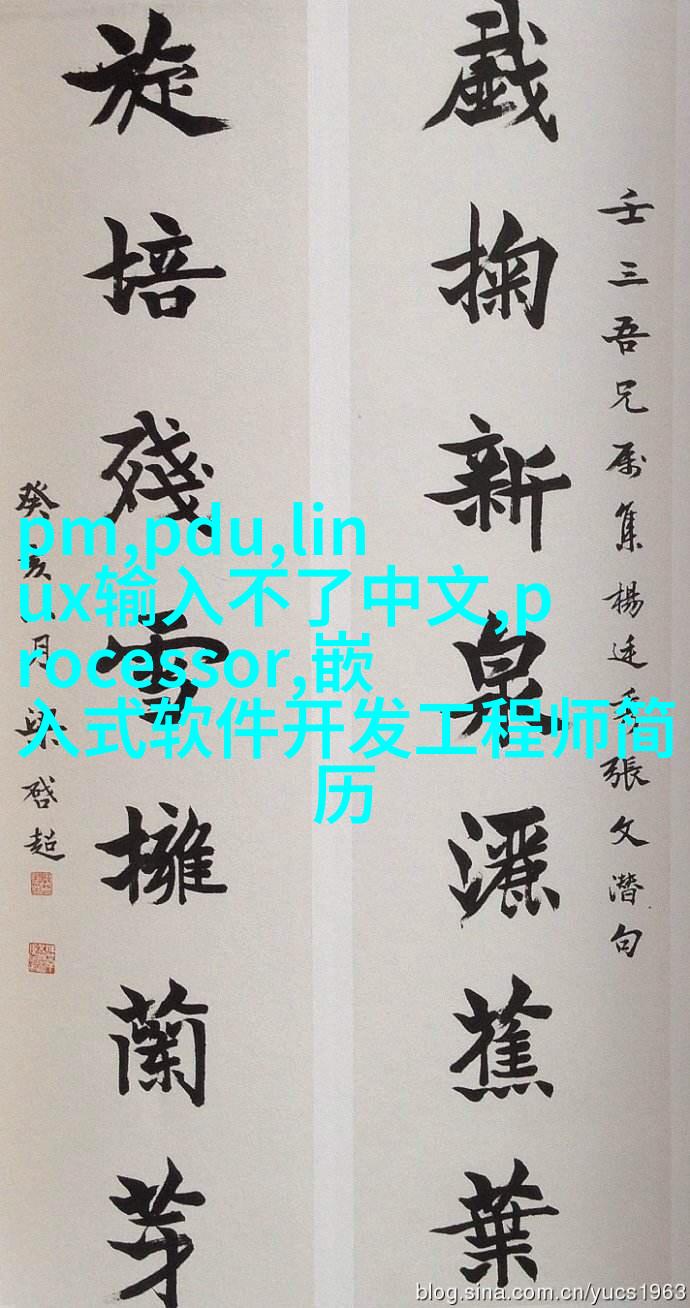 壬三吾兄属集楊廷秀張文潛句
戲掬新泉灑蕉葉
旋培殘雪擁蘭芽
癸亥八月梁啓超
pm,pdu,lin
ux输入不了中文,p
rocessor,嵌
入式软件开发工程师简
历
blog.sina.com.cn/yucs1963